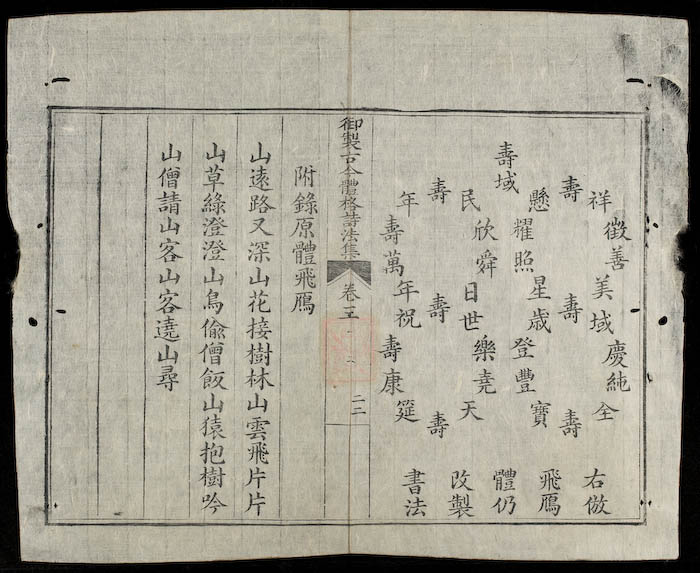 祥徵善美域慶純全 右倣
壽 壽 壽
懸耀照星歲登豐寶 飛鴈
壽域 體仍
民欣舜日世樂堯天 改製
壽 壽 壽
年壽萬年祝壽康筵 書法
御製古今體格詩法集 卷 二二
附錄原體飛鴈
山遠路又深山花接樹林山雲飛片片
山草綠澄澄山鳥偷僧飯山猿抱樹吟
山僧請山客山客遶山尋